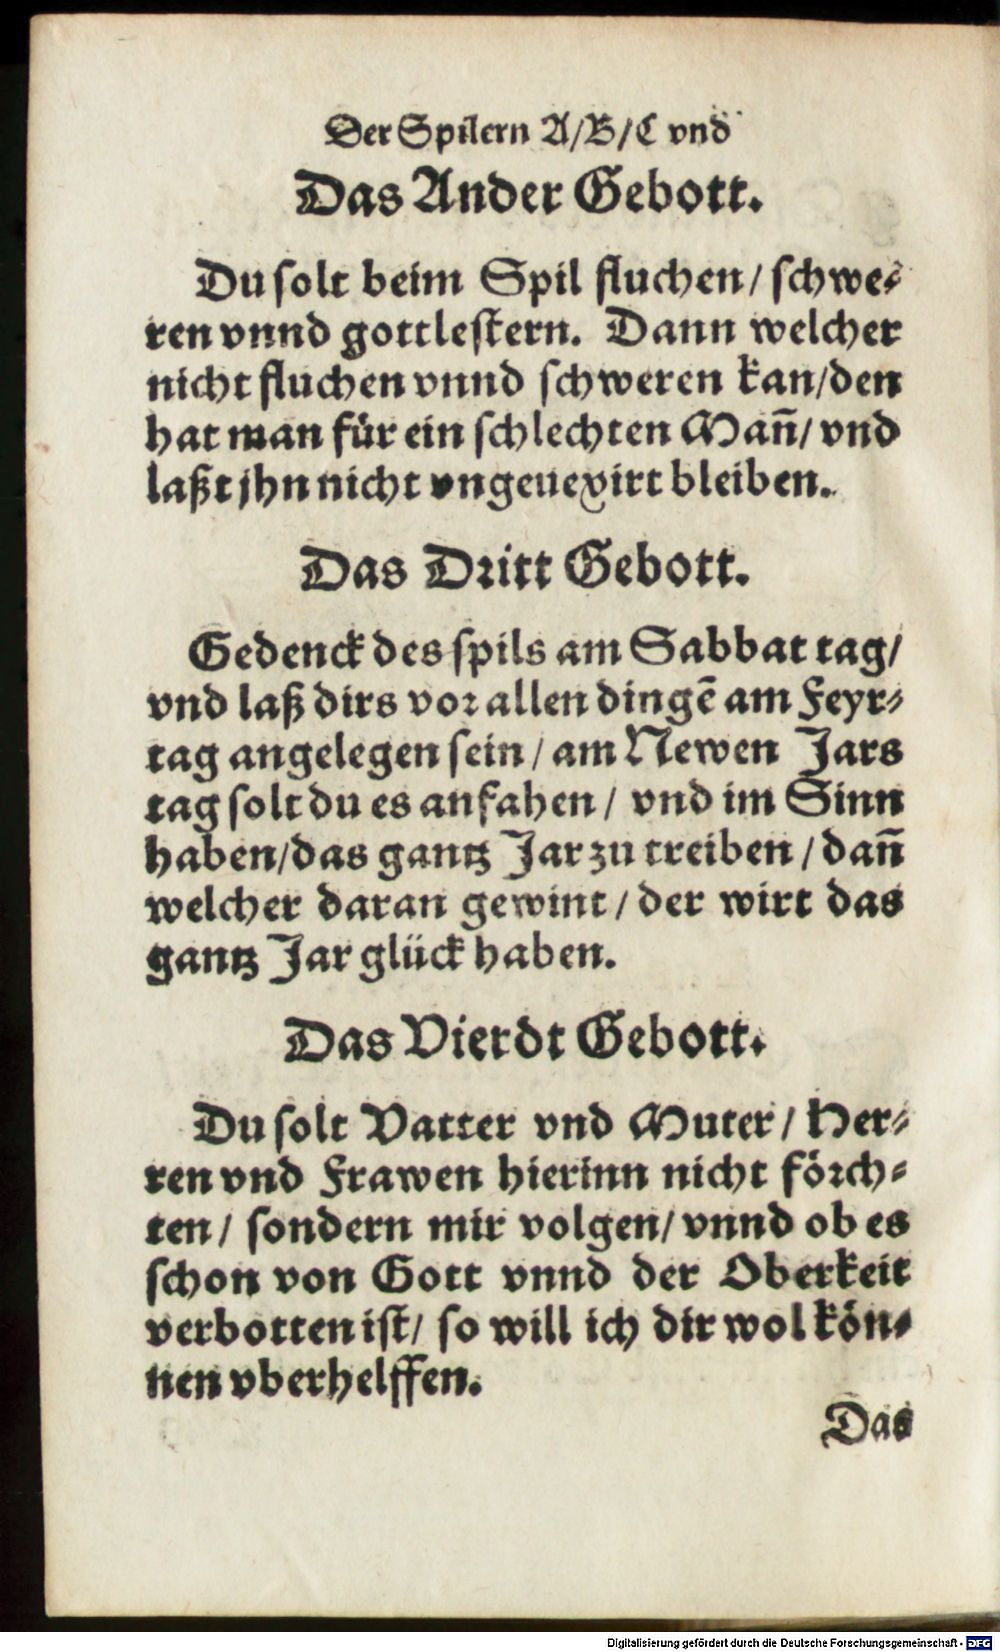 Der Spilern A/B/C vnd
Das Ander Gebott.
Du solt beim Spil fluchen / schwe⸗
ren vnnd gottlestern. Dann welcher
nicht fluchen vnnd schweren kan/den
hat man für ein schlechten Mañ/ vnd
laßt jhn nicht vngeuexirt bleiben.
Das Dritt Gebott.
Gedenck des spils am Sabbat tag/
vnd laß dirs vor allen dingē am Feyr⸗
tag angelegen sein / am Newen Jars
tag solt du es anfahen / vnd im Sinn
haben/das gantz Jar zu treiben / dañ
welcher daran gewint / der wirt das
gantz Jar glück haben.
Das Vierdt Gebott.
Du solt Vatter vnd Muter / Her⸗
ren vnd Frawen hierinn nicht förch⸗
ten / sondern mir volgen/ vnnd ob es
schon von Gott vnnd der Oberkeit
verbotten ist/ so will ich dir wol kön⸗
nen vberhelffen.
Das
Digitalisierung gefördert durch die Deutsche Forschungsgemeinschaft - DFG